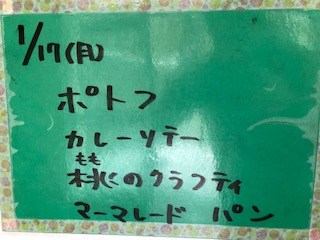 1/17(月)
ポトフ
カレーソテー
もも
桃のクラフティ
マーマレード パン